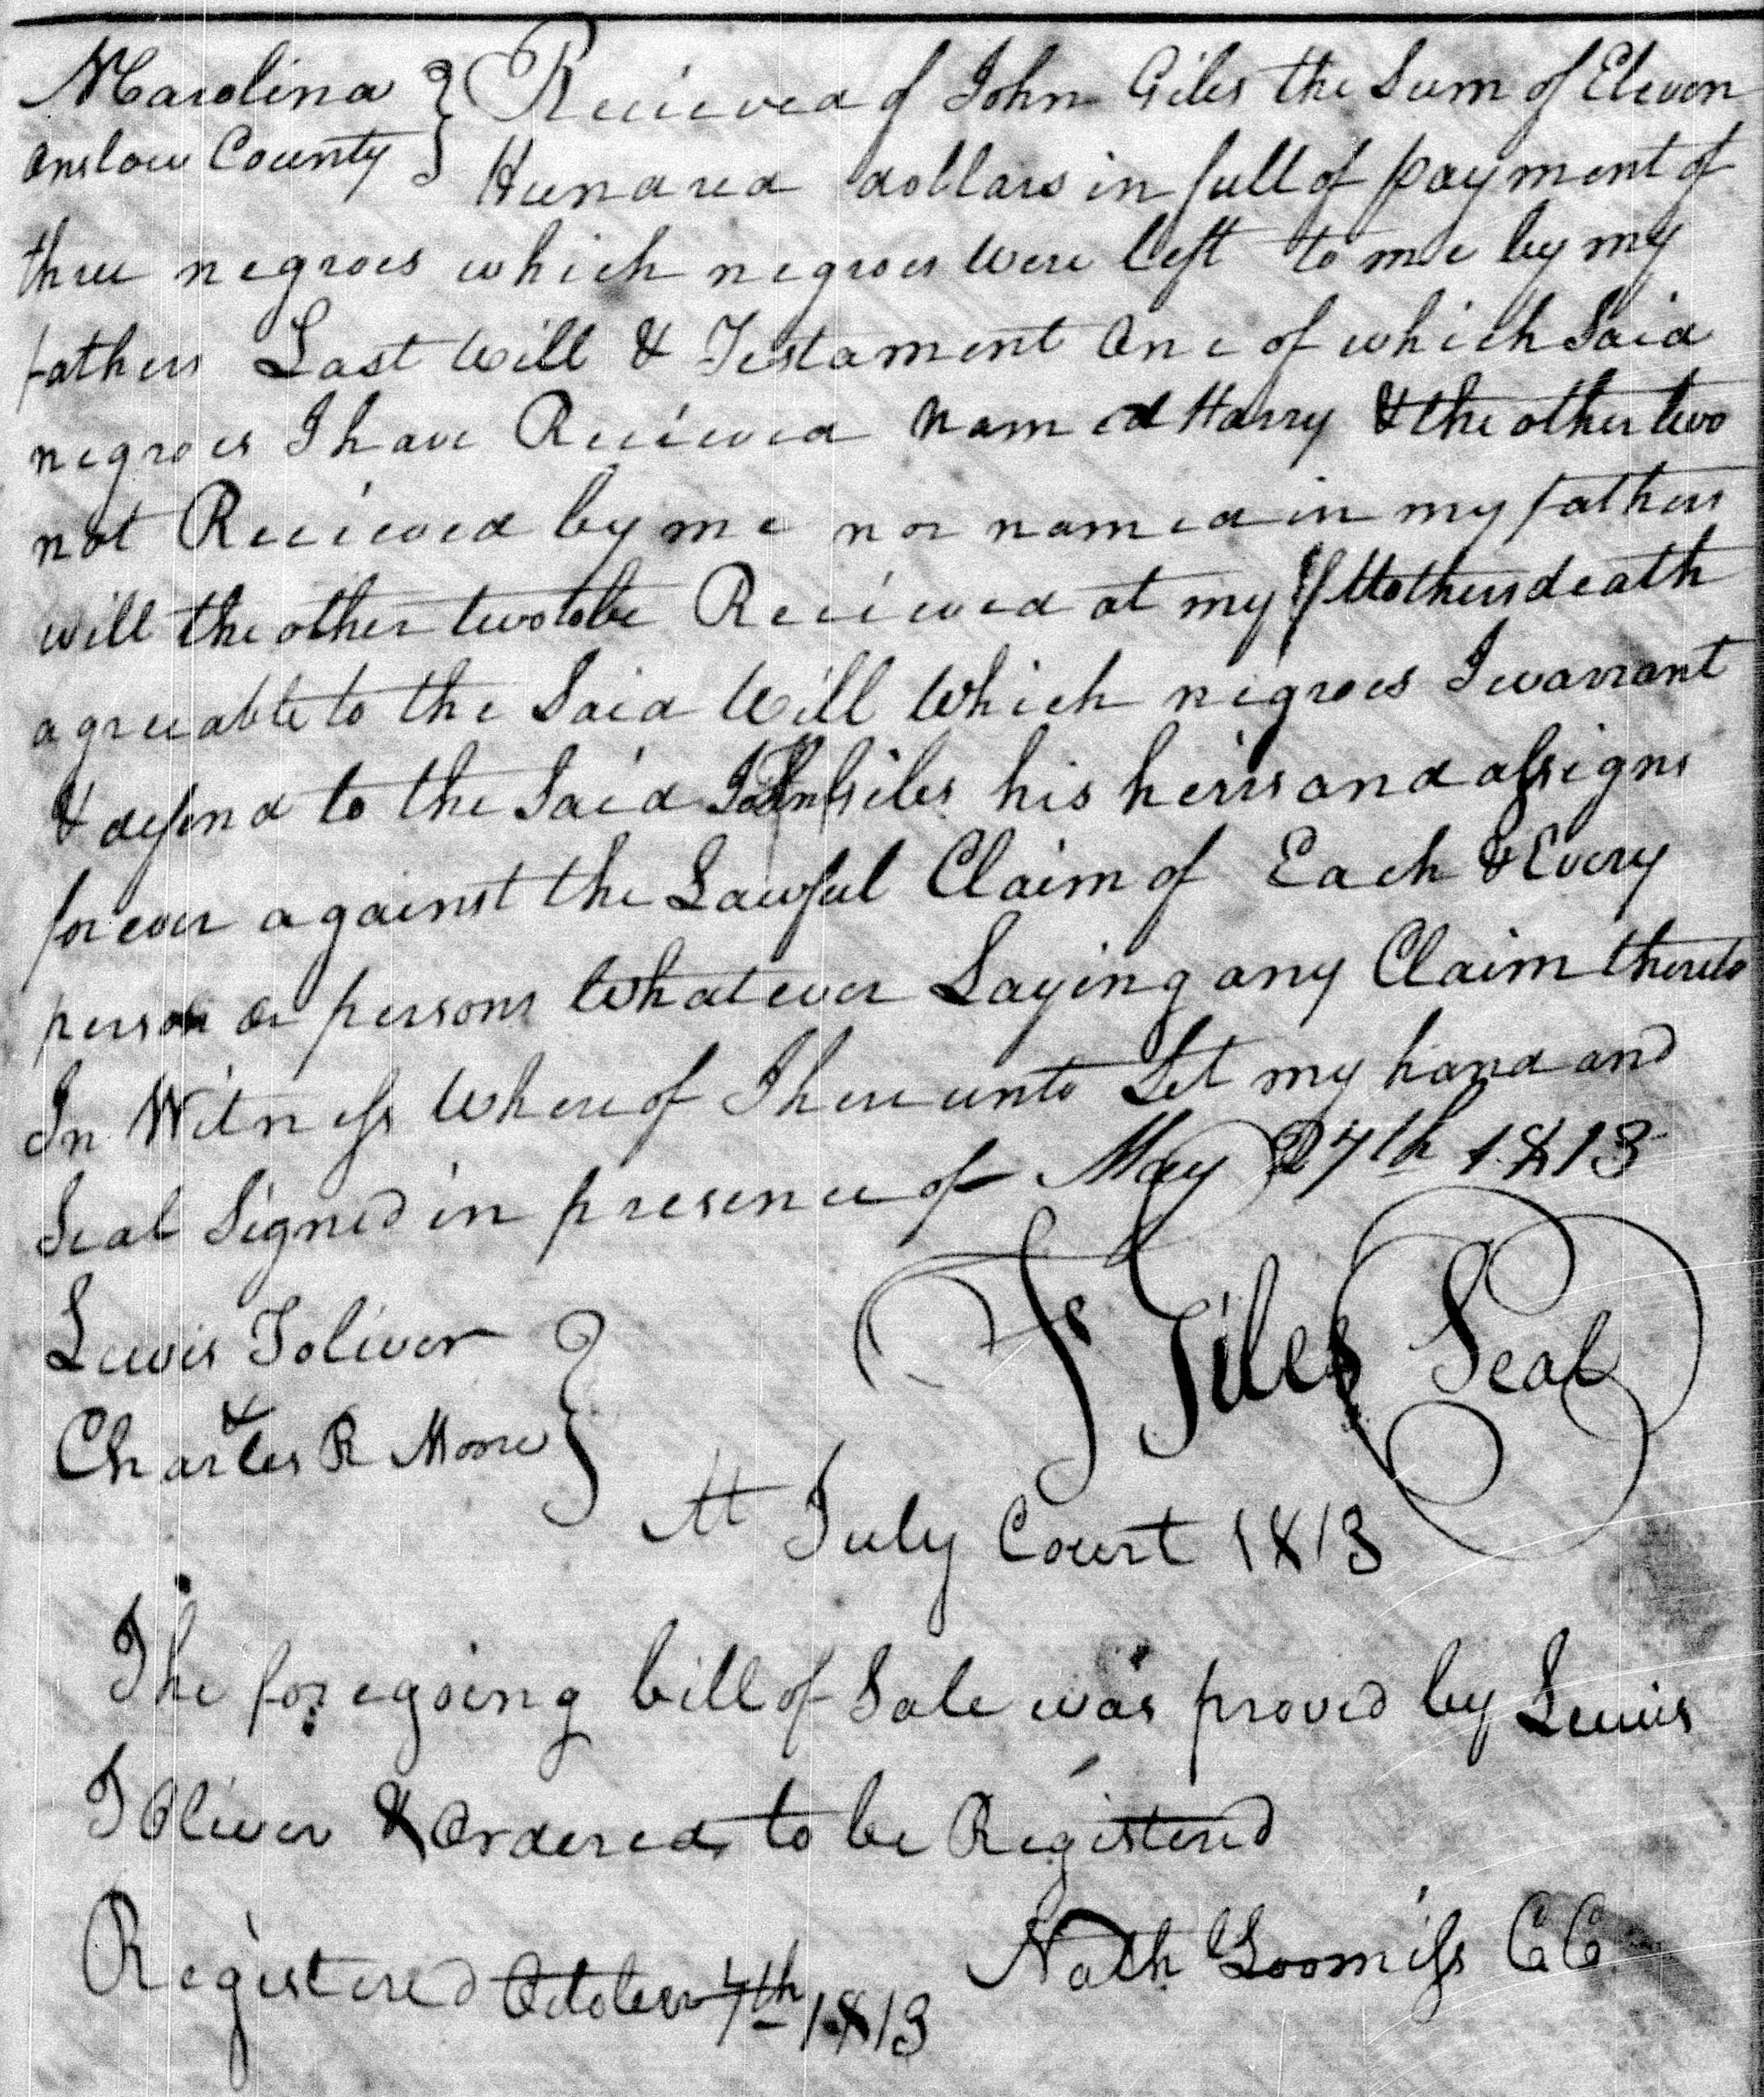 NCarolina } Recieved of John Giles the Sum of Eleven
Onslow County } Hundred dollars in full of payment of
three negroes which negroes were left to me by my
fathers Last Will & Testament One of which Said
negroes I have Recieved named Harry & the other two
not Recieved by me nor named in my fathers
will the other two to be Recieved at my Mothers death
agreeable to the Said Will Which negroes I warrant
& defend to the Said John Giles his heirs and assigns
forever against the Lawful Claim of Each & Every
person or persons Whatever Laying any Claim thereto
In Witness Whereof I hereunto Set my hand and
Seal Signed in presence of May 27th 1813
Lewis Toliver }
& Giles Seal
Charles R Moore }
At July Court 1813
The foregoing bill of Sale was proved by Lewis
Toliver & Ordered to be Registered
Registered October 7th 1813 Nath Loomiss CC